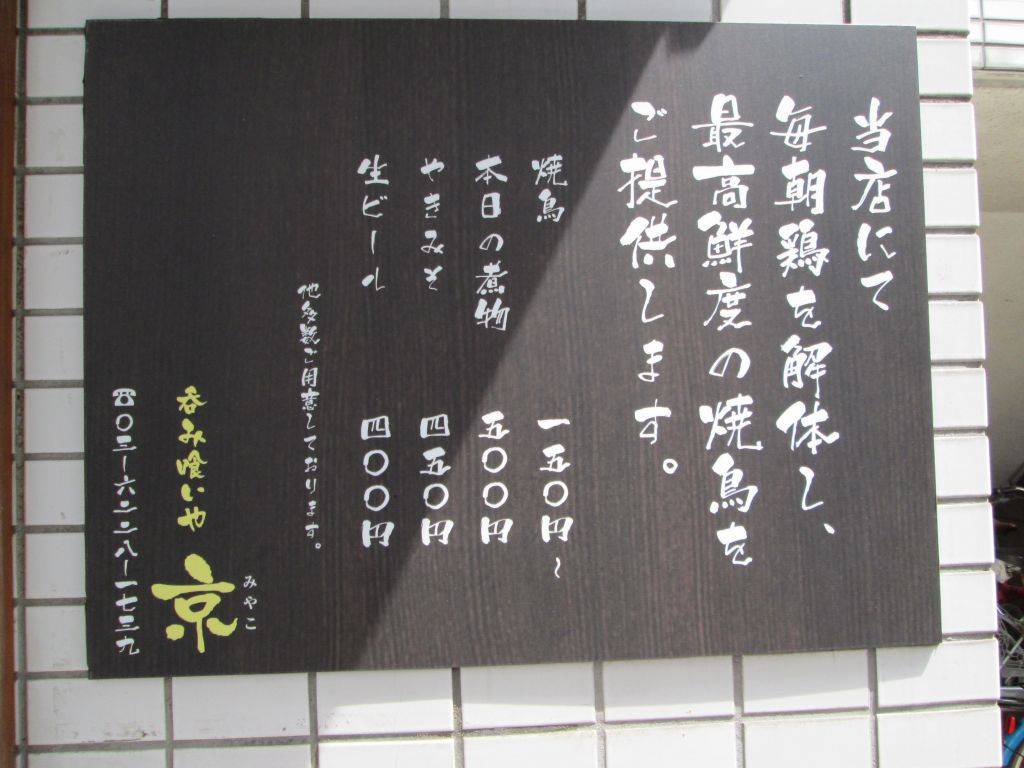 当店にて
毎朝鶏を解体し、
最高鮮度の焼鳥を
ご提供します。
焼鳥 一五〇円~
本日の煮物 五〇〇円
やきみそ 四五〇円
生ビール 四〇〇円
他多数ご用意しております。
呑み喰いや 京
みやこ
☎〇三ー六二二八ー一七三九